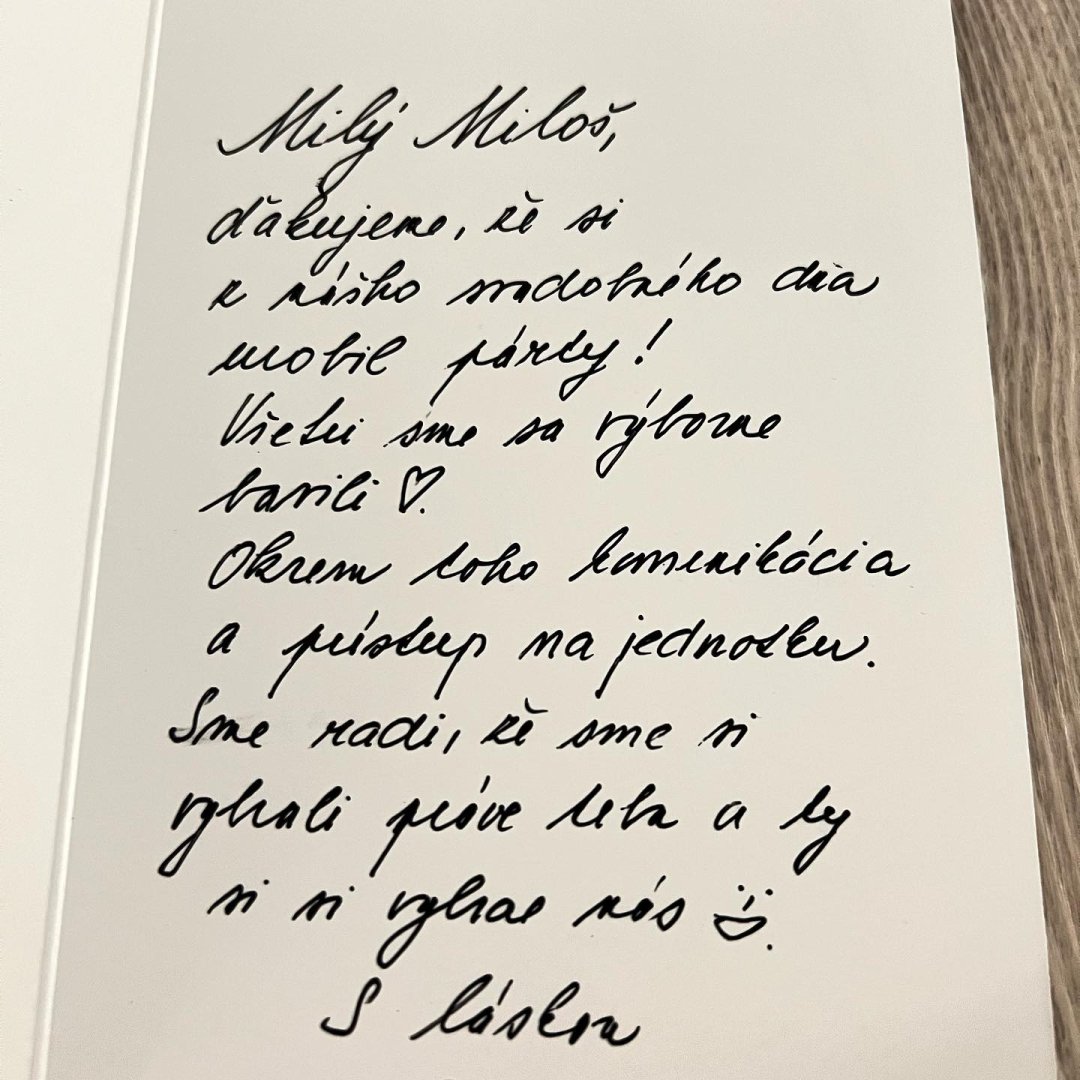 Milý Miloš,
ďakujeme, že si
z nášho svadobného dňa
urobil párty!
Všetci sme sa výborne
bavili ♡.
Okrem toho komunikácia
a prístup na jednotku.
Sme radi, že sme si
vybrali práve teba a ty
si si vybral nás :D.
S láskou